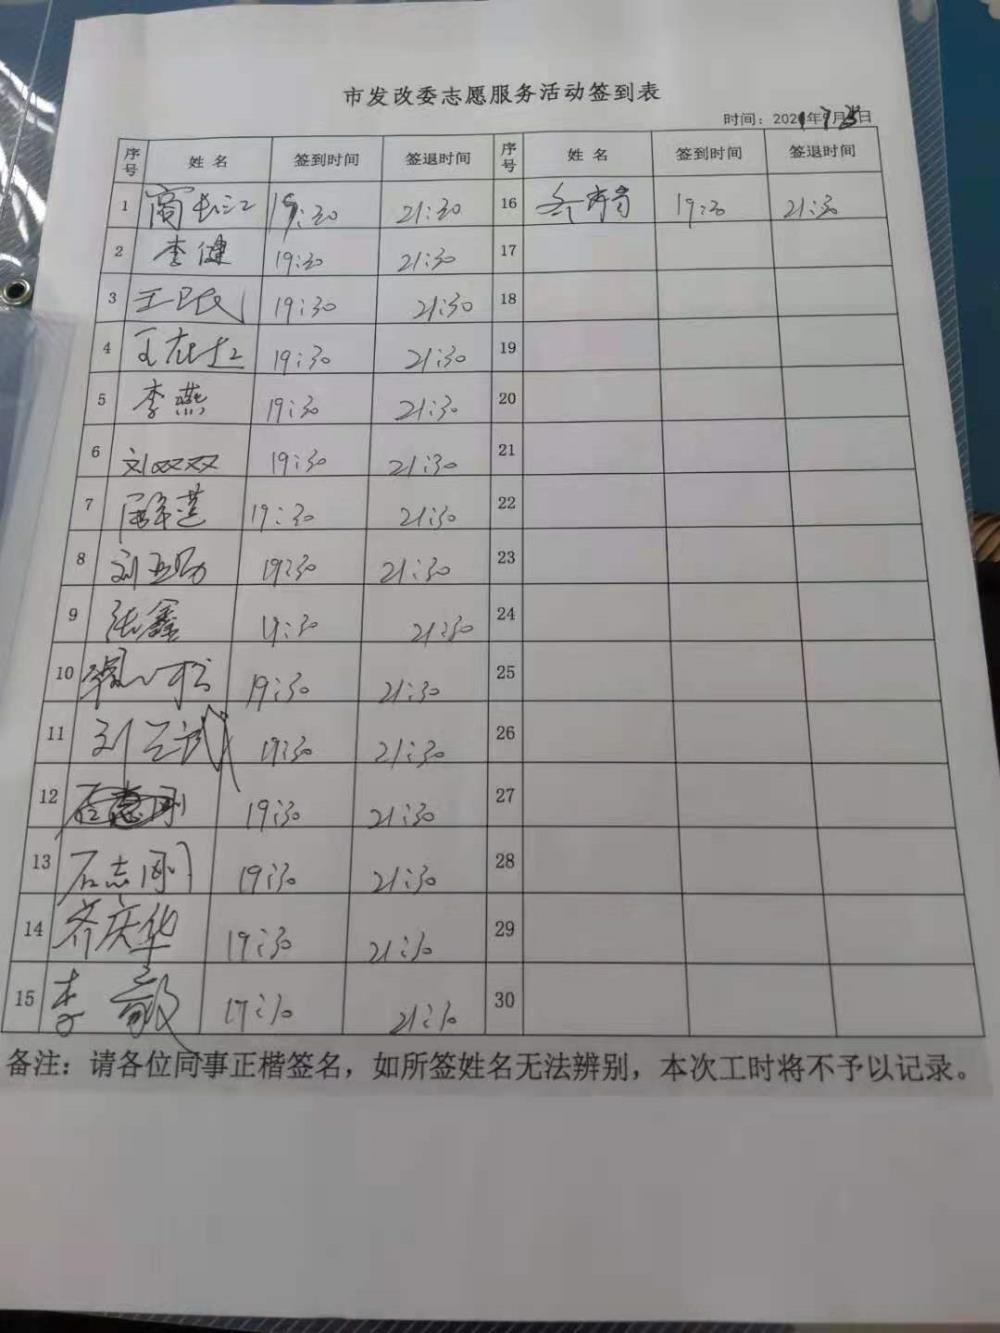 市发改委志愿服务活动签到表
时间：2021年9月25日
序号 姓名 签到时间 签退时间 序号 姓名 签到时间 签退时间
1 商长江 19:30 21:30 16 19:30 21:30
2 李健 19:30 21:30 17
3 王卫民 19:30 21:30 18
4 王 19:30 21:30 19
5 李燕 19:30 21:30 20
6 刘双双 19:30 21:30 21
7 19:30 21:30 22
8 刘 19:30 21:30 23
9 张鑫 19:30 21:30 24
10 松 19:30 21:30 25
11 刘 武 19:30 21:30 26
12 19:30 21:30 27
13 石志刚 19:30 21:30 28
14 齐庆华 19:30 21:30 29
15 李敏 19:30 21:30 30
备注：请各位同事正楷签名，如所签姓名无法辨别，本次工时将不予以记录。